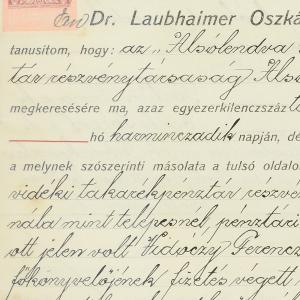 Én Dr. Laubhaimer Oszká
tanusítom, hogy: az „Alsólendva
tár részvénytársaság Also
megkeresésére ma, azaz egyezerkilenczszázt
hó harminczadik napján, dé
a melynek szószerinti másolata a tulsó oldalo
vidéki takarékpénztár részvé
nála mint telepesnél, pénztári
ott jelen volt Vidóczy Ferencz
főkönyvelőjének fizetés végett